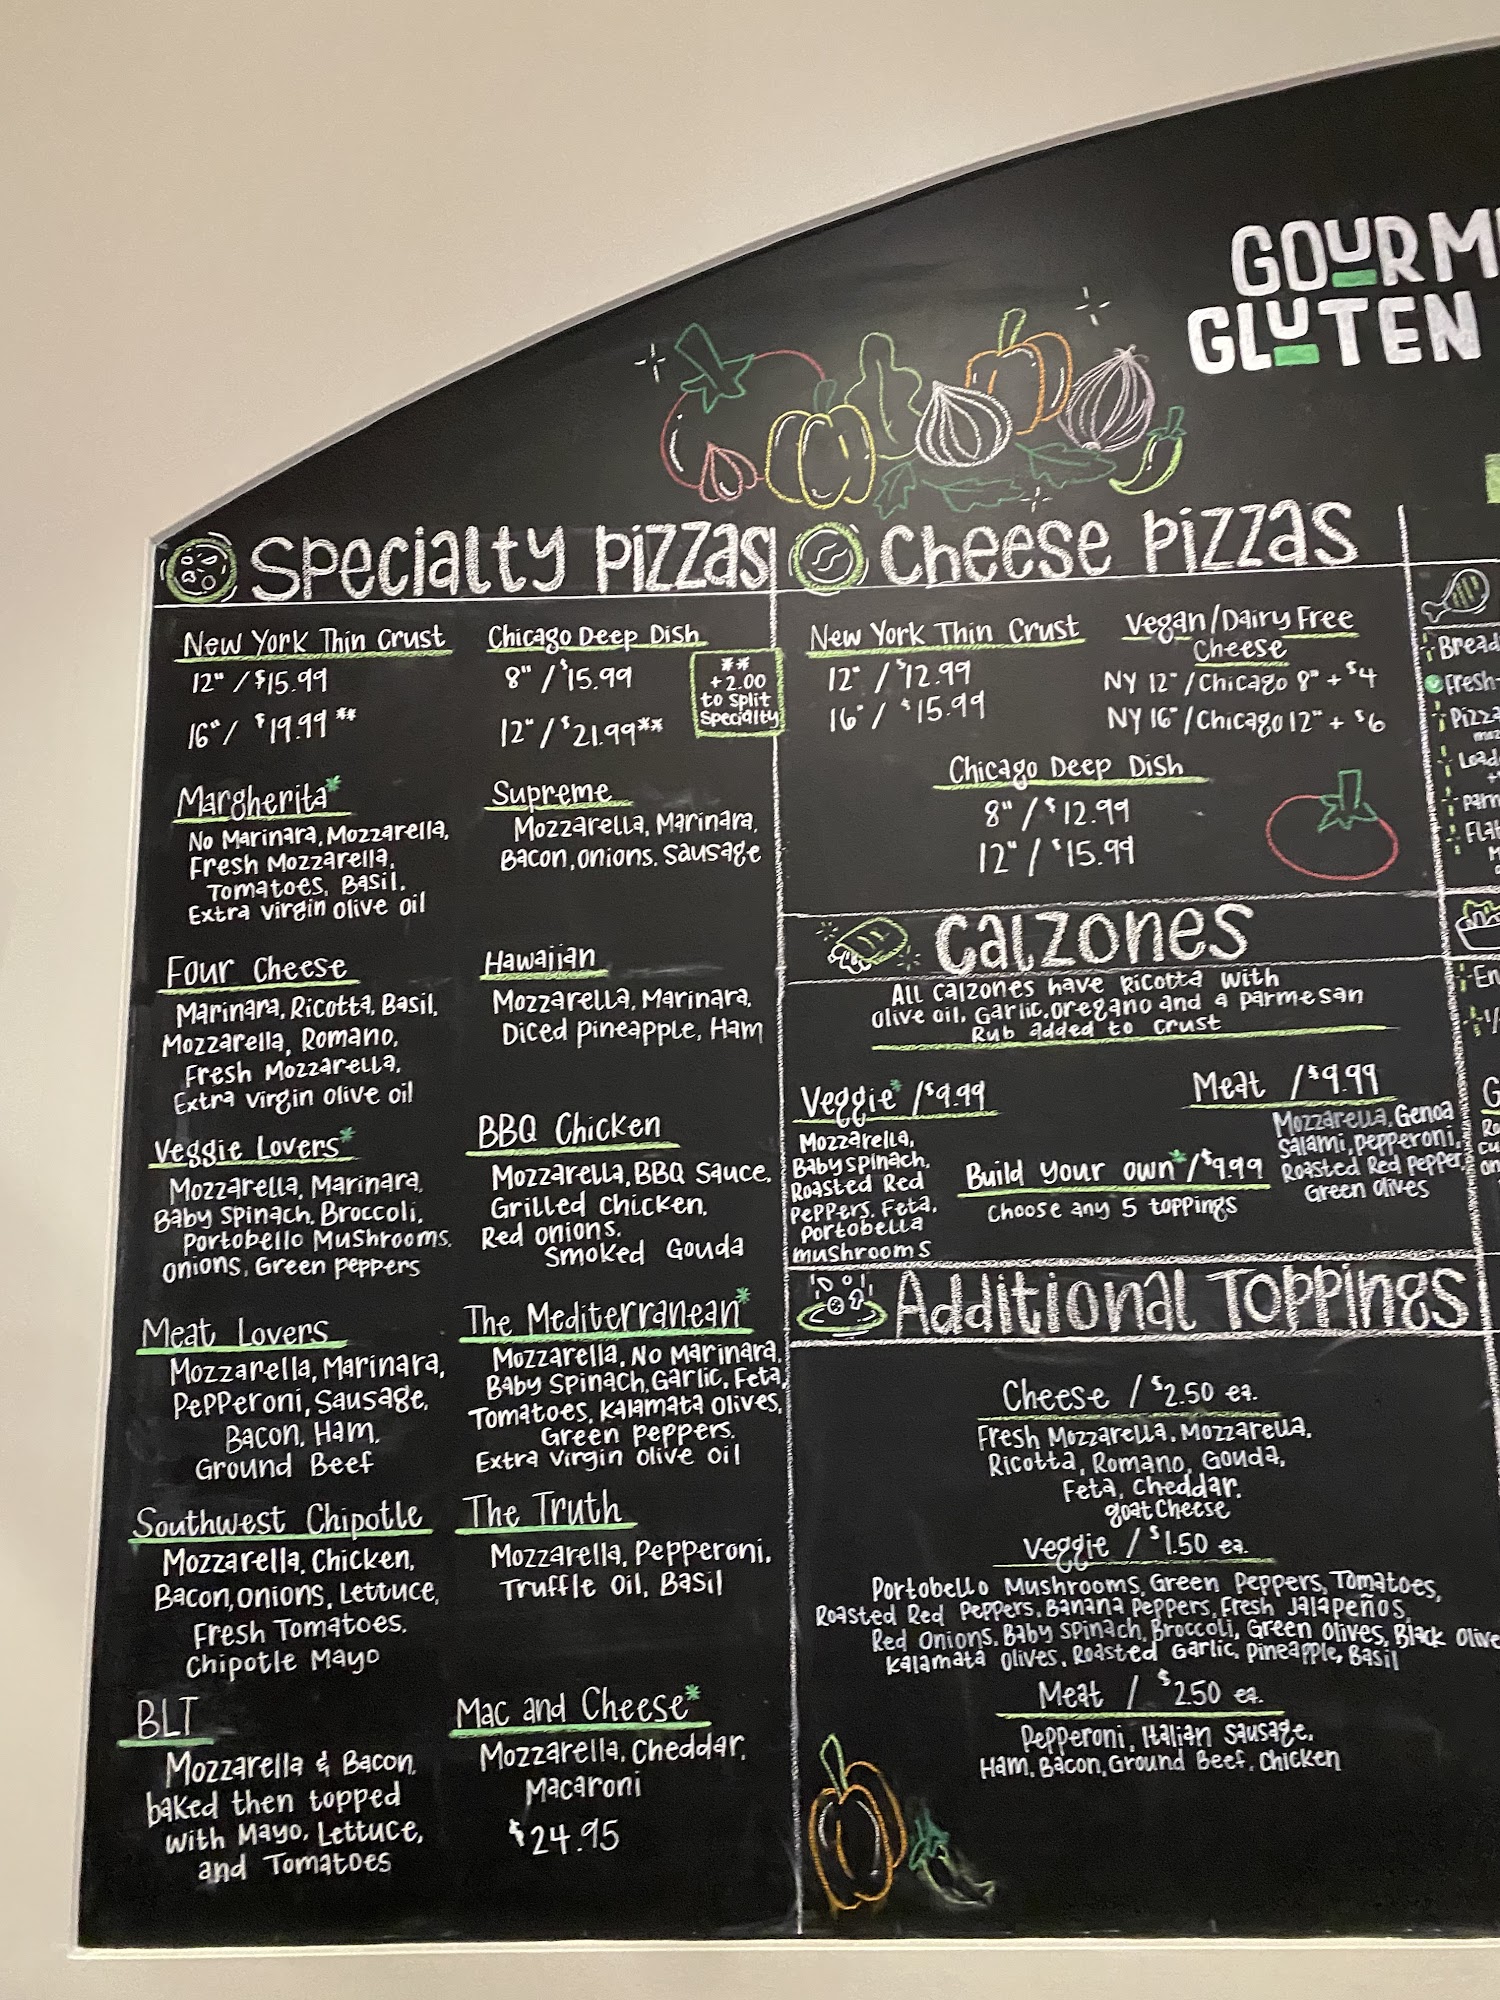 GOURM
GLUTEN
Specialty Pizzas
New York Thin Crust
12" / $15.99
16" / $19.99 **
Chicago Deep Dish
8" / $15.99
12" / $21.99**
**
+2.00
to split
specialty
Margherita*
No Marinara, Mozzarella,
Fresh Mozzarella,
Tomatoes, Basil,
Extra virgin olive oil
Four Cheese
Marinara, Ricotta, Basil,
Mozzarella, Romano,
Fresh Mozzarella,
Extra virgin olive oil
Veggie Lovers*
Mozzarella, Marinara,
Baby Spinach, Broccoli,
Portobello Mushrooms,
onions, Green peppers
Meat Lovers
Mozzarella, Marinara,
Pepperoni, Sausage,
Bacon, Ham,
Ground Beef
Southwest Chipotle
Mozzarella, Chicken,
Bacon, onions, Lettuce,
Fresh Tomatoes,
Chipotle Mayo
BLT
Mozzarella & Bacon,
baked then topped
with Mayo, Lettuce,
and Tomatoes
Supreme
Mozzarella, Marinara,
Bacon, onions, Sausage
Hawaiian
Mozzarella, Marinara,
Diced pineapple, Ham
BBQ Chicken
Mozzarella, BBQ Sauce,
Grilled Chicken,
Red onions,
Smoked Gouda
The Mediterranean*
Mozzarella, No Marinara,
Baby Spinach, Garlic, Feta,
Tomatoes, Kalamata olives,
Green peppers,
Extra Virgin olive oil
The Truth
Mozzarella, Pepperoni,
Truffle Oil, Basil
Mac and Cheese*
Mozzarella, Cheddar,
Macaroni
$24.95
Cheese Pizzas
New York Thin Crust
12" / $12.99
16" / $15.99
Vegan/Dairy Free
Cheese
NY 12" / Chicago 8" + $4
NY 16" / Chicago 12" + $6
Chicago Deep Dish
8" / $12.99
12" / $15.99
Calzones
All calzones have ricotta with
olive oil, Garlic, oregano and a parmesan
Rub added to crust
Veggie* / $9.99
Mozzarella,
Baby spinach,
Roasted Red
Peppers, Feta,
Portobella
mushrooms
Build your own* / $9.99
Choose any 5 toppings
Meat / $9.99
Mozzarella, Genoa
Salami, pepperoni,
Roasted Red Pepper
Green olives
Additional Toppings
Cheese / $2.50 ea.
Fresh Mozzarella, Mozzarella,
Ricotta, Romano, Gouda,
Feta, Cheddar,
goat Cheese
Veggie / $1.50 ea.
Portobello Mushrooms, Green Peppers, Tomatoes,
Roasted Red Peppers, Banana Peppers, Fresh Jalapeños,
Red Onions, Baby spinach, Broccoli, Green olives, Black olive
Kalamata olives, Roasted Garlic, Pineapple, Basil
Meat / $2.50 ea.
Pepperoni, Italian Sausage,
Ham, Bacon, Ground Beef, Chicken
Bread
Fresh-
Pizza
Load
parm
Flat